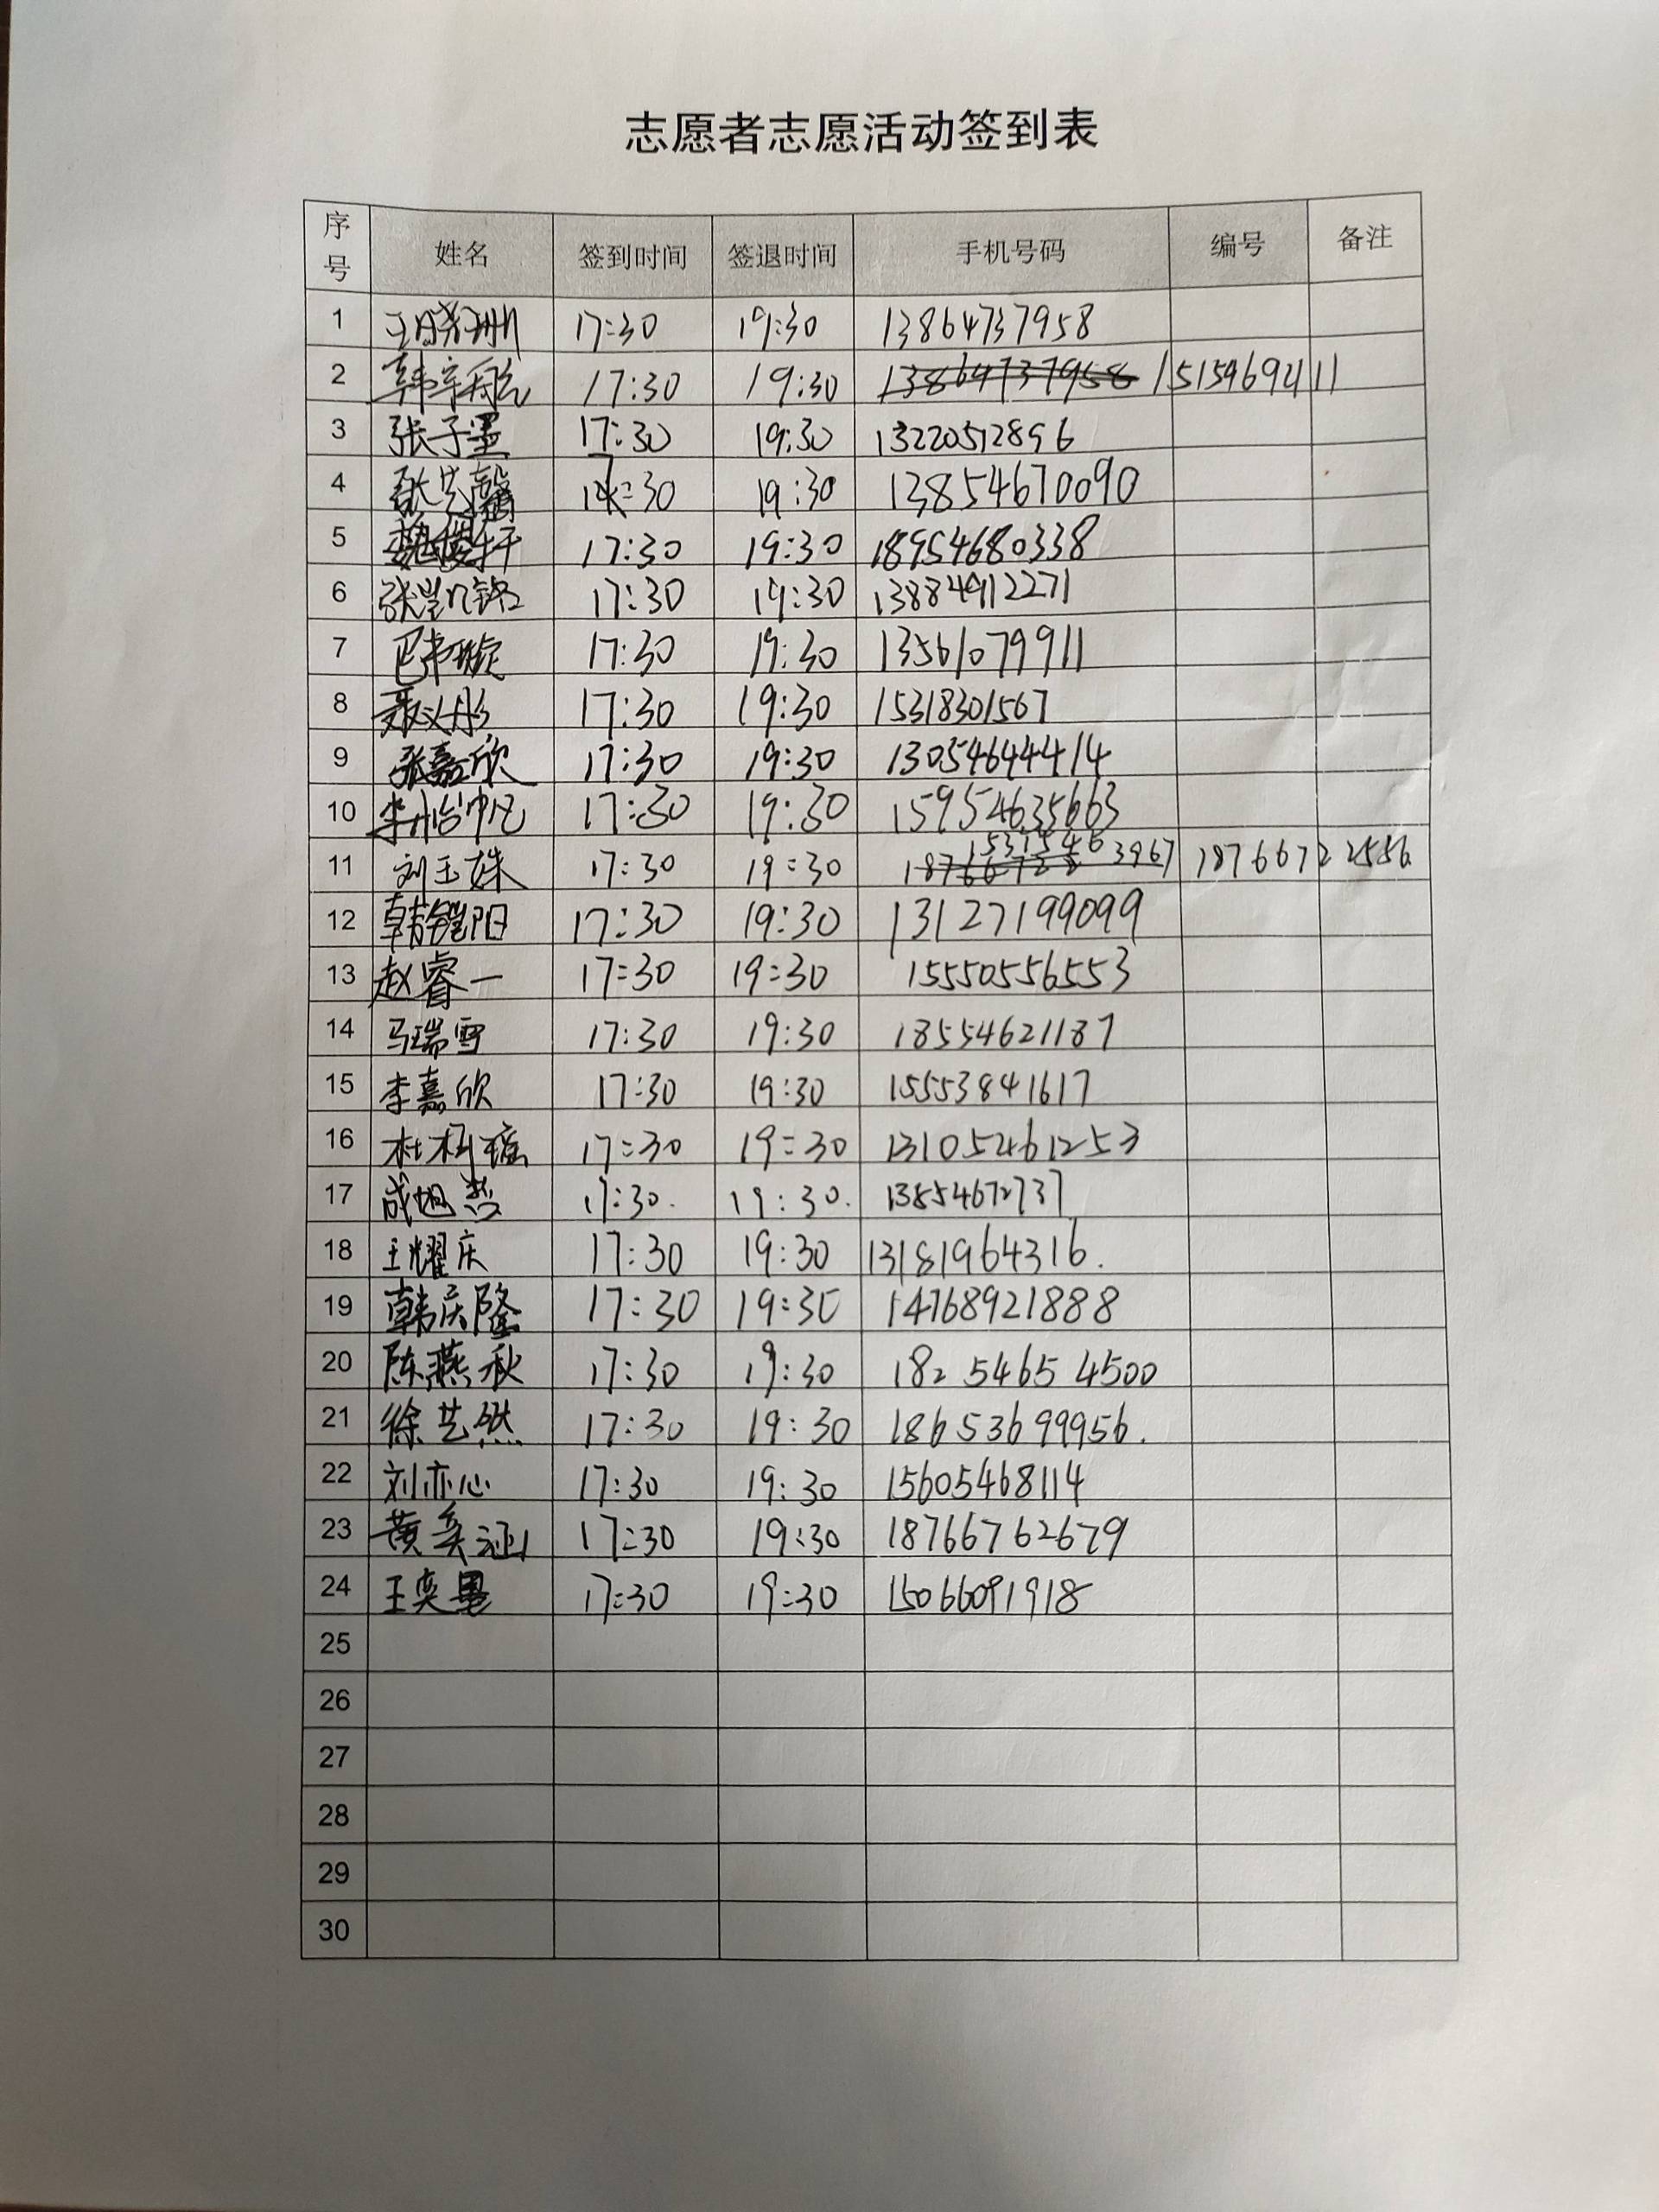 志愿者志愿活动签到表
序号 姓名 签到时间 签退时间 手机号码 编号 备注
1 17:30 19:30 13864737958
2 韩宗航 17:30 19:30 13864737958 15154692111
3 张子墨 17:30 19:30 13220512896
4 张艺馨 17:30 19:30 13854670090
5 17:30 19:30 18954680338
6 张凯铭 17:30 19:30 13884912271
7 17:30 19:30 13561079911
8 聂义彤 17:30 19:30 15318301567
9 张嘉欣 17:30 19:30 13054644414
10 17:30 19:30 15954635663
11 刘玉姝 17:30 19:30 1876672 1531546 3967 18766722556
12 韩铠阳 17:30 19:30 13127199099
13 赵睿一 17:30 19:30 15550556553
14 马瑞雪 17:30 19:30 18554621187
15 李嘉欣 17:30 19:30 15553841617
16 杜柯瑶 17:30 19:30 13105461253
17 成旭哲 17:30. 19:30. 13854672737
18 王耀庆 17:30 19:30 13181964316.
19 韩庆隆 17:30 19:30 14768921888
20 陈燕秋 17:30 19:30 182 5465 4500
21 徐艺然 17:30 19:30 18653699956.
22 刘亦心 17:30 19:30 15605468114
23 黄奕涵 17:30 19:30 18766762679
24 王奕墨 17:30 19:30 15066091918
25
26
27
28
29
30